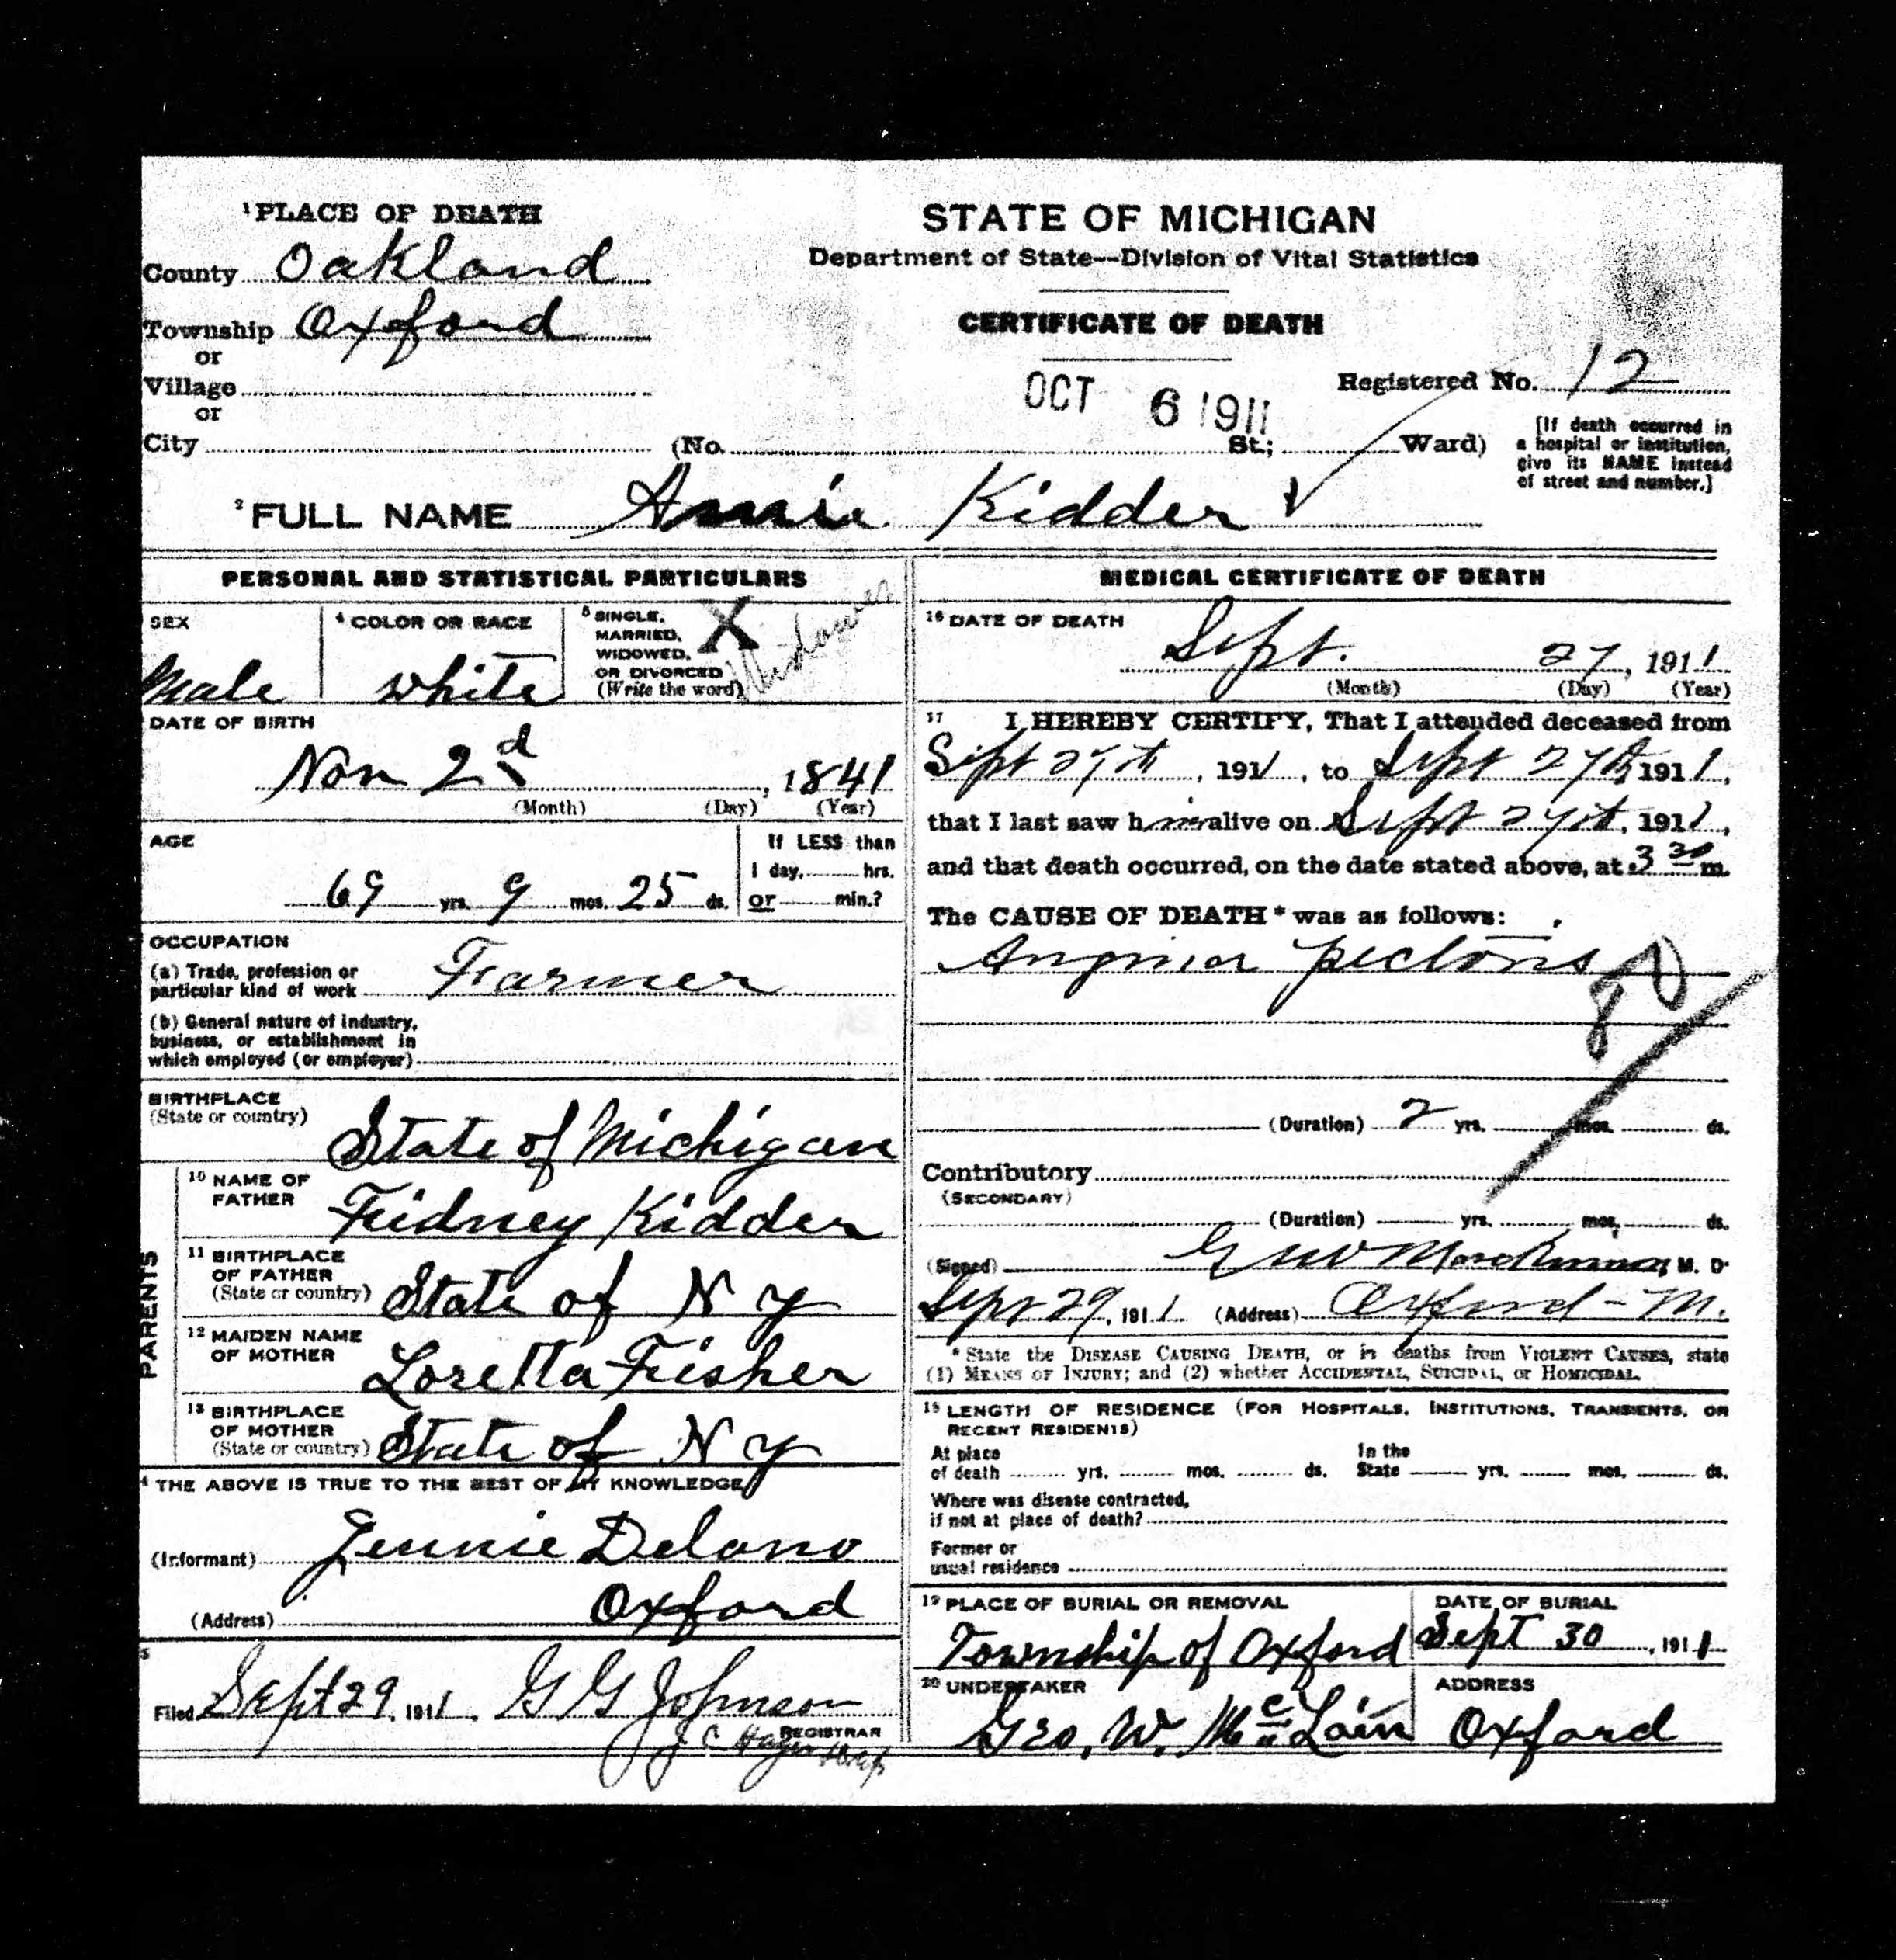 1 PLACE OF DEATH
County Oakland
Township Oxford
or
Village
or
City (No. St.; Ward)
STATE OF MICHIGAN
Department of State—Division of Vital Statistics
CERTIFICATE OF DEATH
OCT 6 1911
Registered No. 12
[If death occurred in
a hospital or institution,
give its NAME instead
of street and number.]
2 FULL NAME Kidder
PERSONAL AND STATISTICAL PARTICULARS
SEX
Male
4 COLOR OR RACE
white
5 SINGLE,
MARRIED,
WIDOWED,
OR DIVORCED
(Write the word)
X Widower
DATE OF BIRTH
Nov 2d, 1841
(Month) (Day) (Year)
AGE
69 yrs. 9 mos. 25 ds.
If LESS than
1 day, hrs.
or min.?
OCCUPATION
(a) Trade, profession or
particular kind of work Farmer
(b) General nature of industry,
business, or establishment in
which employed (or employer)
BIRTHPLACE
(State or country) State of Michigan
PARENTS
10 NAME OF
FATHER Kidder
11 BIRTHPLACE
OF FATHER
(State or country) State of N Y
12 MAIDEN NAME
OF MOTHER Loretta Fisher
13 BIRTHPLACE
OF MOTHER
(State or country) State of N Y
4 THE ABOVE IS TRUE TO THE BEST OF MY KNOWLEDGE
(Informant) Jennie Delano
(Address) Oxford
5
Filed Sept 29, 1911. G G Johnson
REGISTRAR
MEDICAL CERTIFICATE OF DEATH
16 DATE OF DEATH
Sept. 27, 1911
(Month) (Day) (Year)
17 I HEREBY CERTIFY, That I attended deceased from
Sept 27th, 1911, to Sept 27th, 1911,
that I last saw him alive on Sept 27th, 1911,
and that death occurred, on the date stated above, at 3 30 m.
The CAUSE OF DEATH* was as follows:
Angina pectoris
80
(Duration) 2 yrs. mos. ds.
Contributory
(SECONDARY)
(Duration) yrs. mos. ds.
(Signed) M. D.
Sept 29, 1911 (Address) Oxford - M.
* State the DISEASE CAUSING DEATH, or in deaths from VIOLENT CAUSES, state
(1) MEANS OF INJURY; and (2) whether ACCIDENTAL, SUICIDAL, or HOMICIDAL.
18 LENGTH OF RESIDENCE (FOR HOSPITALS, INSTITUTIONS, TRANSIENTS, OR
RECENT RESIDENTS)
At place
of death yrs. mos. ds.
In the
State yrs. mos. ds.
Where was disease contracted,
if not at place of death?
Former or
usual residence
19 PLACE OF BURIAL OR REMOVAL
Township of Oxford
DATE OF BURIAL
Sept 30, 1911
20 UNDERTAKER
Geo. W. McLain
ADDRESS
Oxford